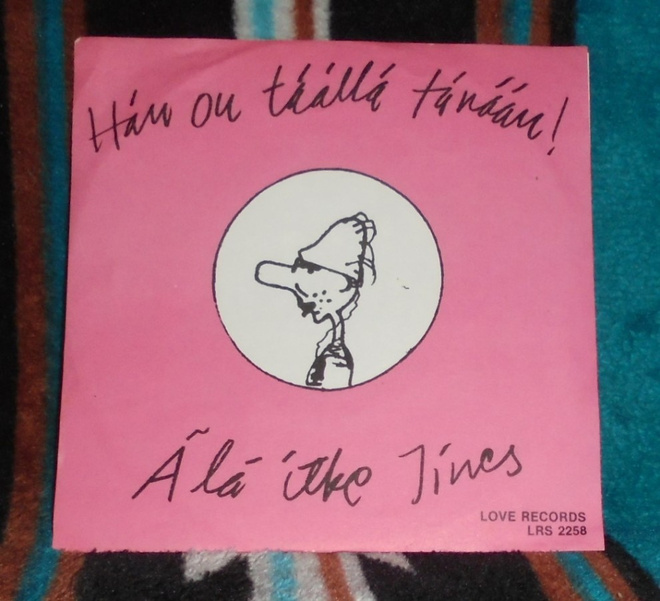 Hän on täällä tänään!
Älä itke Iines
LOVE RECORDS
LRS 2258